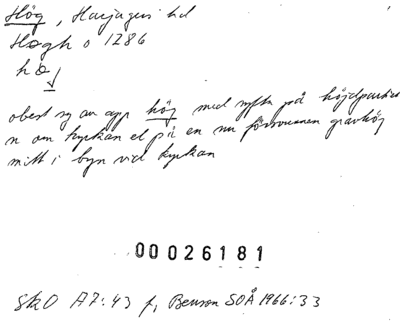 Hög, Harjagers hd
Høgh o 1286
hø
obest sg av app hög med syftn på höjdpartiet
n om kyrkan el på en nu försvunnen gravhög
mitt i byn vid kyrkan
00026181
SkO A7:43 f, Benson SOÅ 1966:33